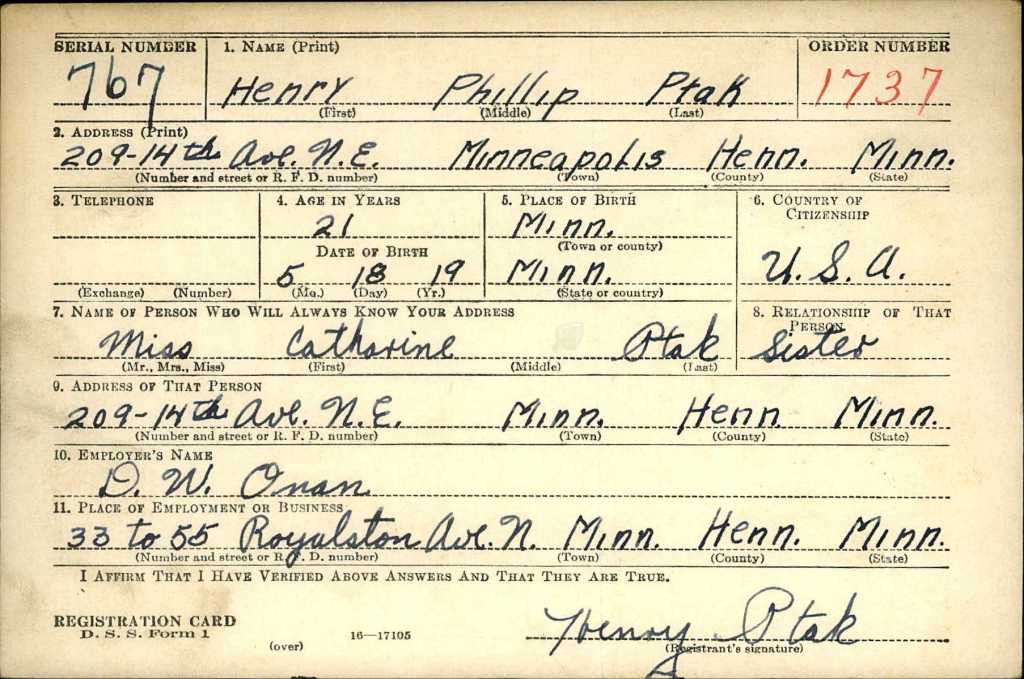 SERIAL NUMBER 1. NAME (Print) ORDER NUMBER
767 Henry Phillip Ptak 1737
(First) (Middle) (Last)
2. ADDRESS (Print)
209-14th Ave. N.E. Minneapolis Henn. Minn.
(Number and street or R. F. D. number) (Town) (County) (State)
3. TELEPHONE 4. AGE IN YEARS 5. PLACE OF BIRTH 6. COUNTRY OF CITIZENSHIP
21 Minn.
(Town or county)
DATE OF BIRTH
5 18 19 Minn. U. S. A.
(Exchange) (Number) (Mo.) (Day) (Yr.) (State or country)
7. NAME OF PERSON WHO WILL ALWAYS KNOW YOUR ADDRESS 8. RELATIONSHIP OF THAT PERSON
Miss Catharine Ptak Sister
(Mr., Mrs., Miss) (First) (Middle) (Last)
9. ADDRESS OF THAT PERSON
209-14th Ave. N.E. Minn. Henn. Minn.
(Number and street or R. F. D. number) (Town) (County) (State)
10. EMPLOYER'S NAME
D. W. Onan
11. PLACE OF EMPLOYMENT OR BUSINESS
33 to 55 Royalston Ave. N. Minn. Henn. Minn.
(Number and street or R. F. D. number) (Town) (County) (State)
I AFFIRM THAT I HAVE VERIFIED ABOVE ANSWERS AND THAT THEY ARE TRUE.
REGISTRATION CARD
D. S. S. Form 1 16—17105 Henry Ptak
(over) (Registrant's signature)